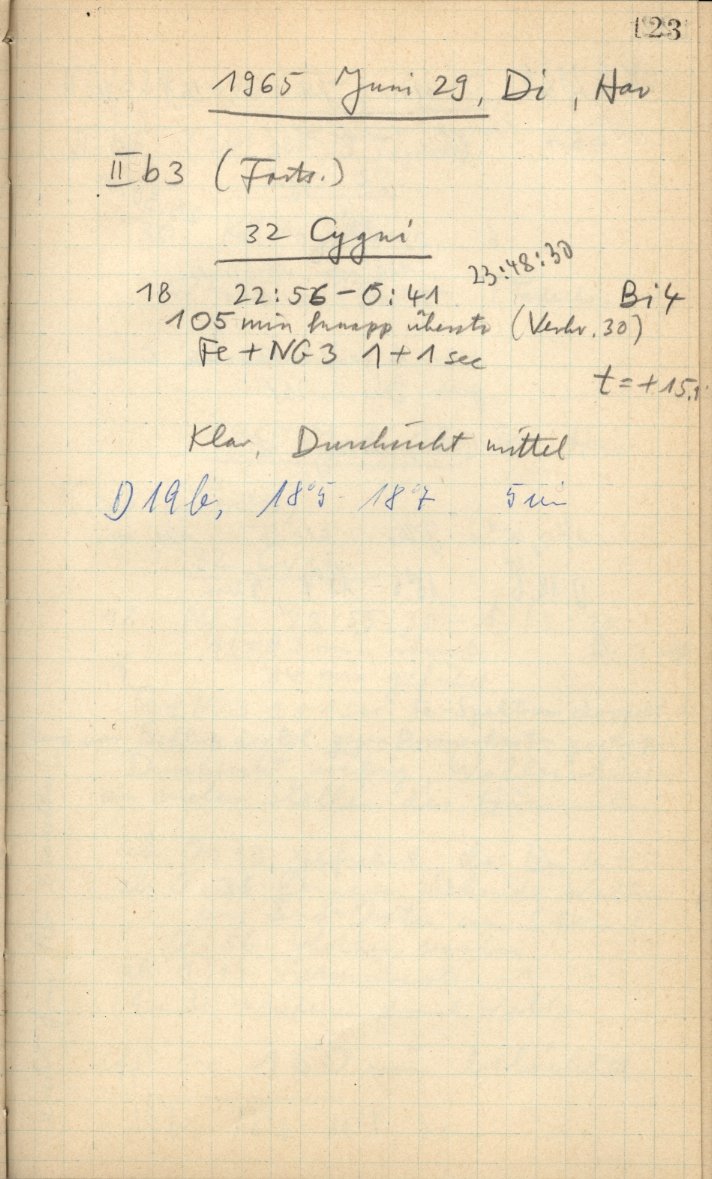 123
1965 Juni 29, Di, Hav
II b 3 (Forts.)
32 Cygni
23:48:30
18 22:56-0:41 Bi 4
105 min knapp überstr (Verbr. 30)
Fe + NG 3 1+1 sec
t = +15,
Klar, Durchsicht mittel
D 19 b, 18°5 - 18°7 5 m